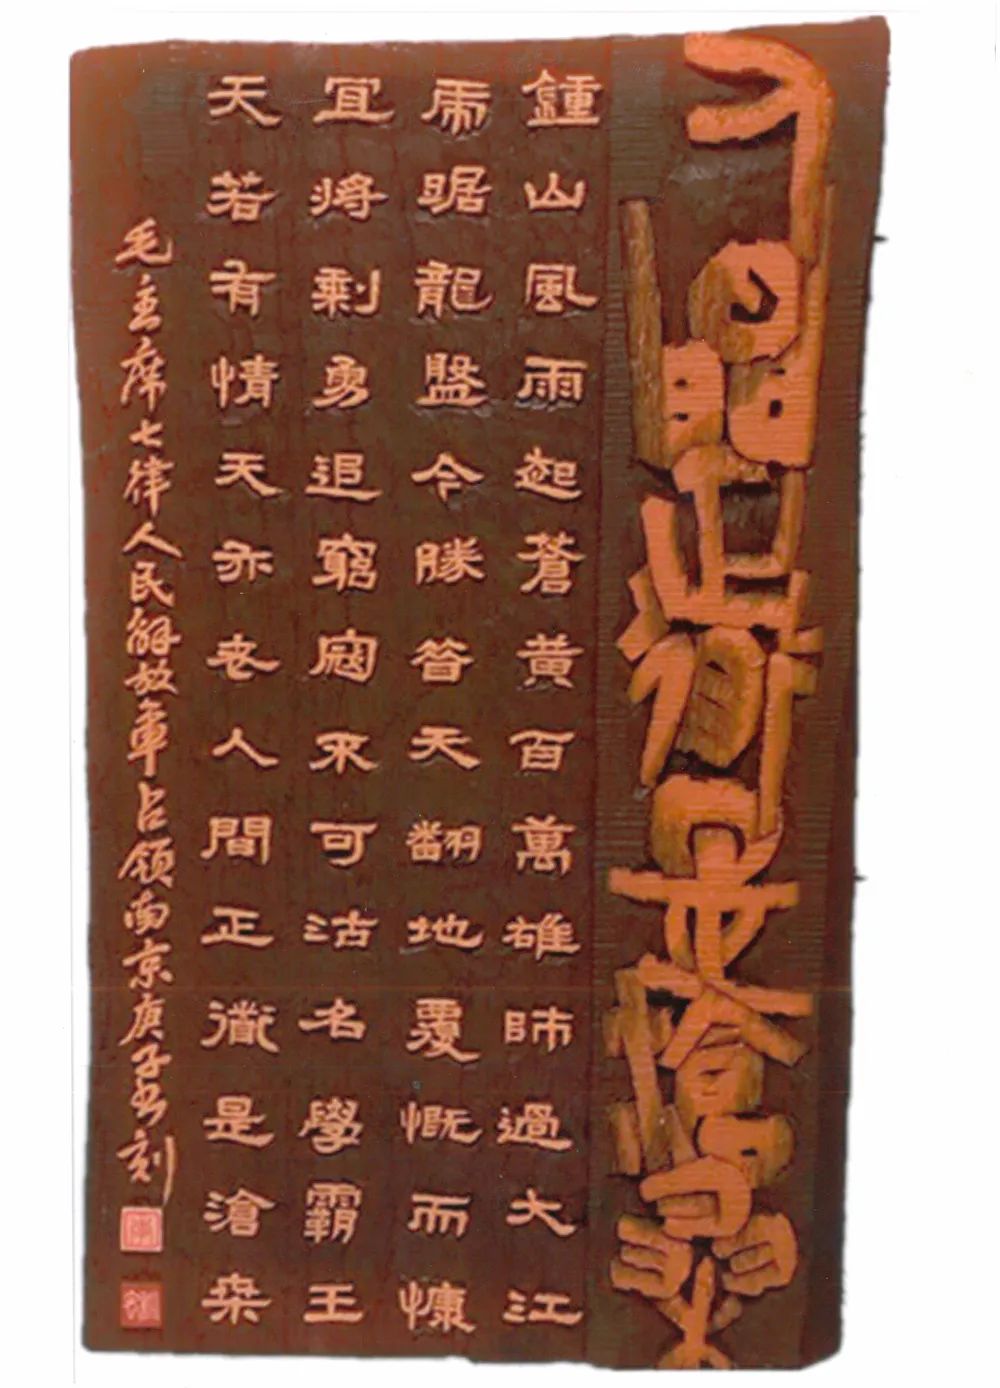 鍾山風雨起蒼黃百萬雄師過大江
虎踞龍盤今勝昔天翻地覆慨而慷
宜將剩勇追窮寇不可沽名學霸王
天若有情天亦老人間正道是滄桑
毛主席七律人民解放軍占領南京庚子书刻